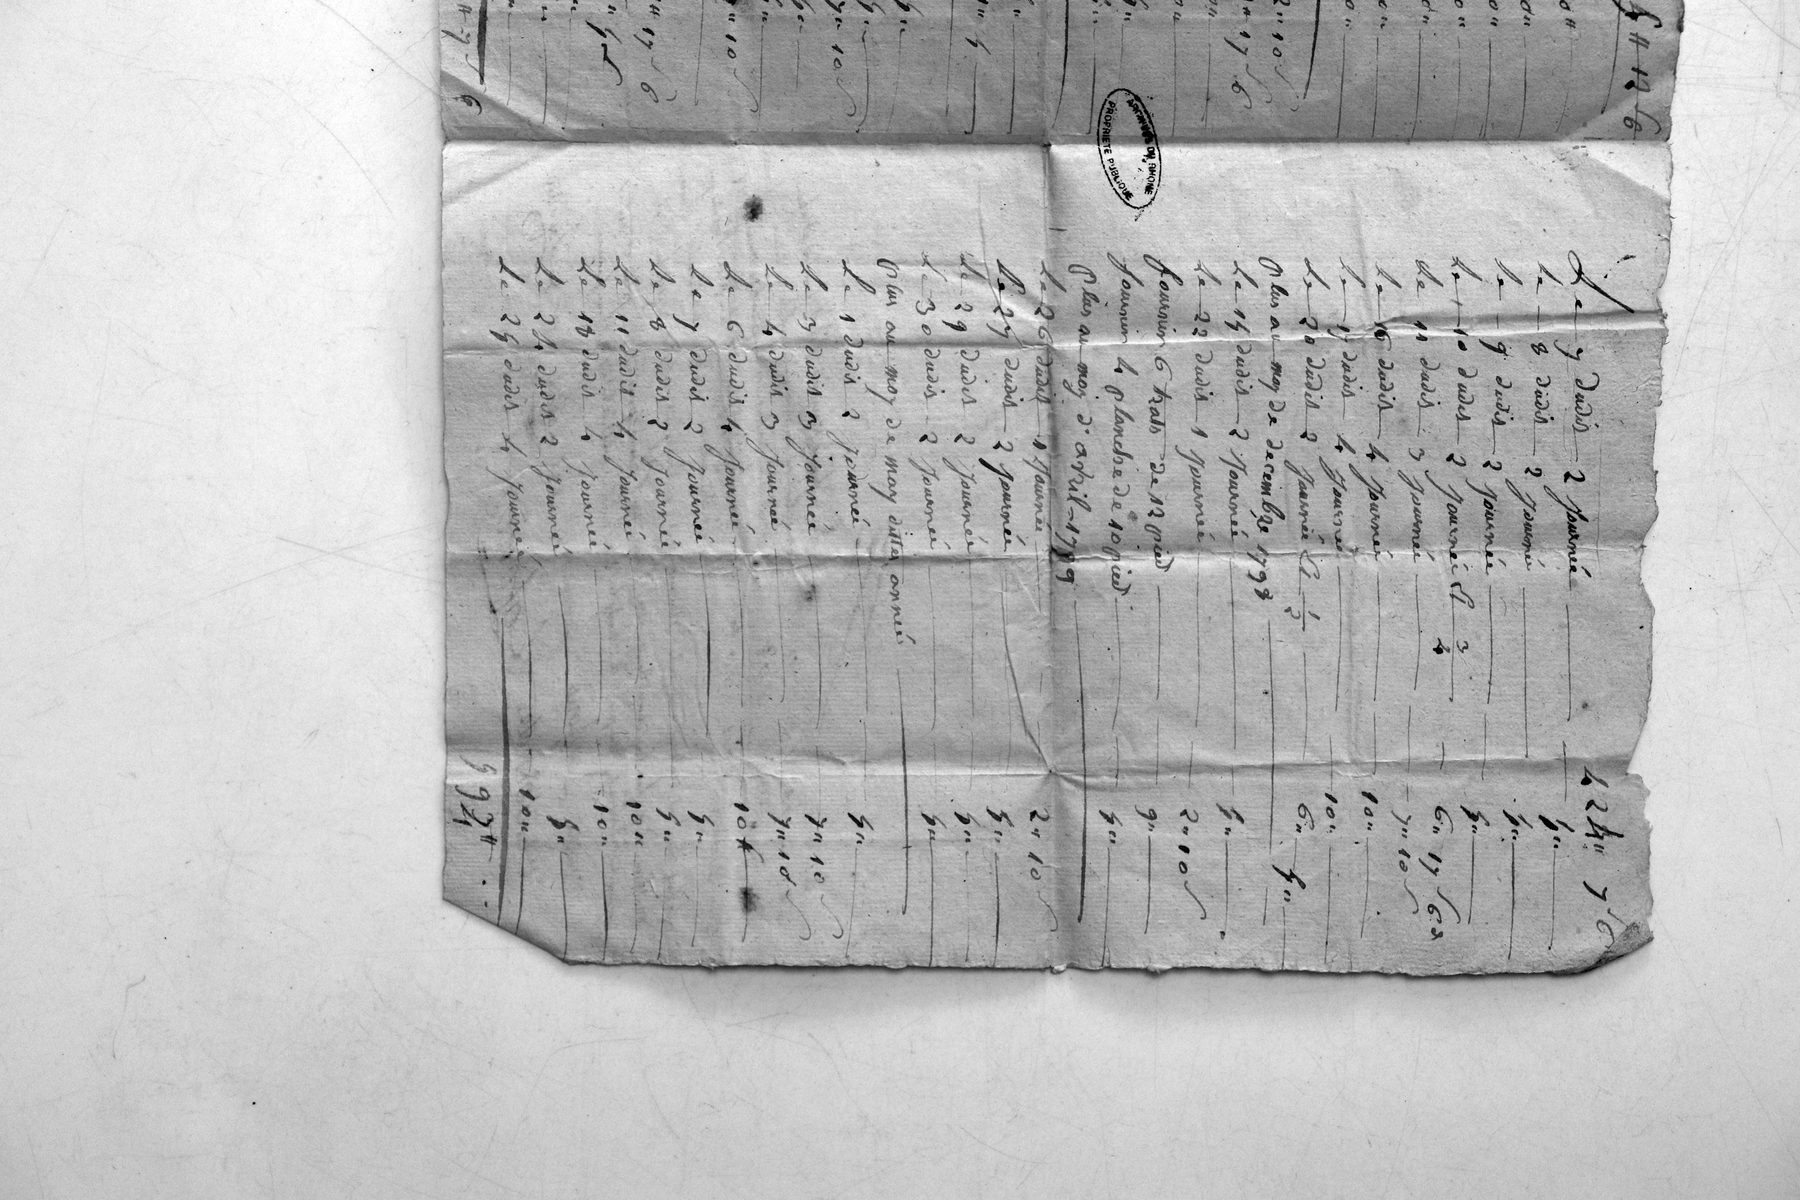 12 6
2" 10 s
17 s 6
10 s
10 s
17 s 6
424" 7 s 6
Le 7 dudit 2 journée 5"
Le 8 dudit 2 journée 5"
Le 9 dudit 2 journée 5"
Le 10 dudit 2 journée et 3/4 6" 17 s 6 d
Le 11 dudit 3 journée 7" 10 s
Le 16 dudit 4 journée 10"
Le 17 dudit 4 journée 10"
Le 20 dudit 2 journée et 1/2 6" 5"
Plus au moy de decembre 1798
Le 15 dudit 2 journée 5"
Le 22 dudit 1 journée 2" 10 s
fournir 6 trats de 12 pied 9"
fournir 4 planche de 10 pied 5"
Plus au moy d'avril 1799
Le 26 dudit 1 journée 2" 10 s
Le 27 dudit 2 journée 5"
Le 29 dudit 2 journée 5"
Le 30 dudit 2 journée 5"
Plus au moy de may ditte année
Le 1 dudit 2 journée 5"
Le 3 dudit 3 journée 7" 10 s
Le 4 dudit 3 journée 7" 10 s
Le 6 dudit 4 journée 10"
Le 7 dudit 2 journée 5"
Le 8 dudit 2 journée 5"
Le 11 dudit 4 journée 10"
Le 18 dudit 4 journée 10"
Le 24 dudit 2 journée 5"
Le 25 dudit 4 journée 10"
597"
ARCHIVES DU RHONE
PROPRIETE PUBLIQUE